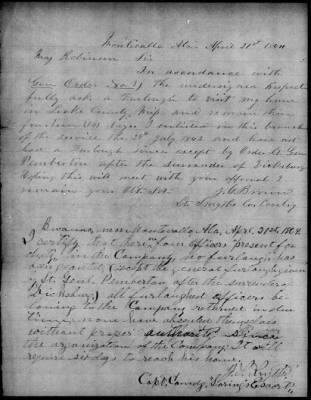 Montivallo Ala April 21st 1864
Maj Robinson Sir
In accordance with
Gen Order No. the undersigned respect
fully asks a furlough to visit my home
in County Miss. and remain there
days. I enlisted in this branch
of the service the 25 July 1862 and have not
had a furlough since except by Order Lt Gen
Pemberton after the surrender of Vicksburg
Hoping this will meet with your approval I
remain your Obt Svt. J. Brown
Lt. Smyths Co
near Montivallo Ala, Apr. 21st 1864
I certify, that here four officers present for
duty in the Company, no furlough has
been granted (except the general furlough given
by Lt. Genl. Pemberton after the surrender of
Vicksburg) all furloughed officers be-
longing to the Company returned in due
time, none have absented themselves
without proper authority since
the organization of the Company. It will
require six days to reach his home.
Capt. Comdg.